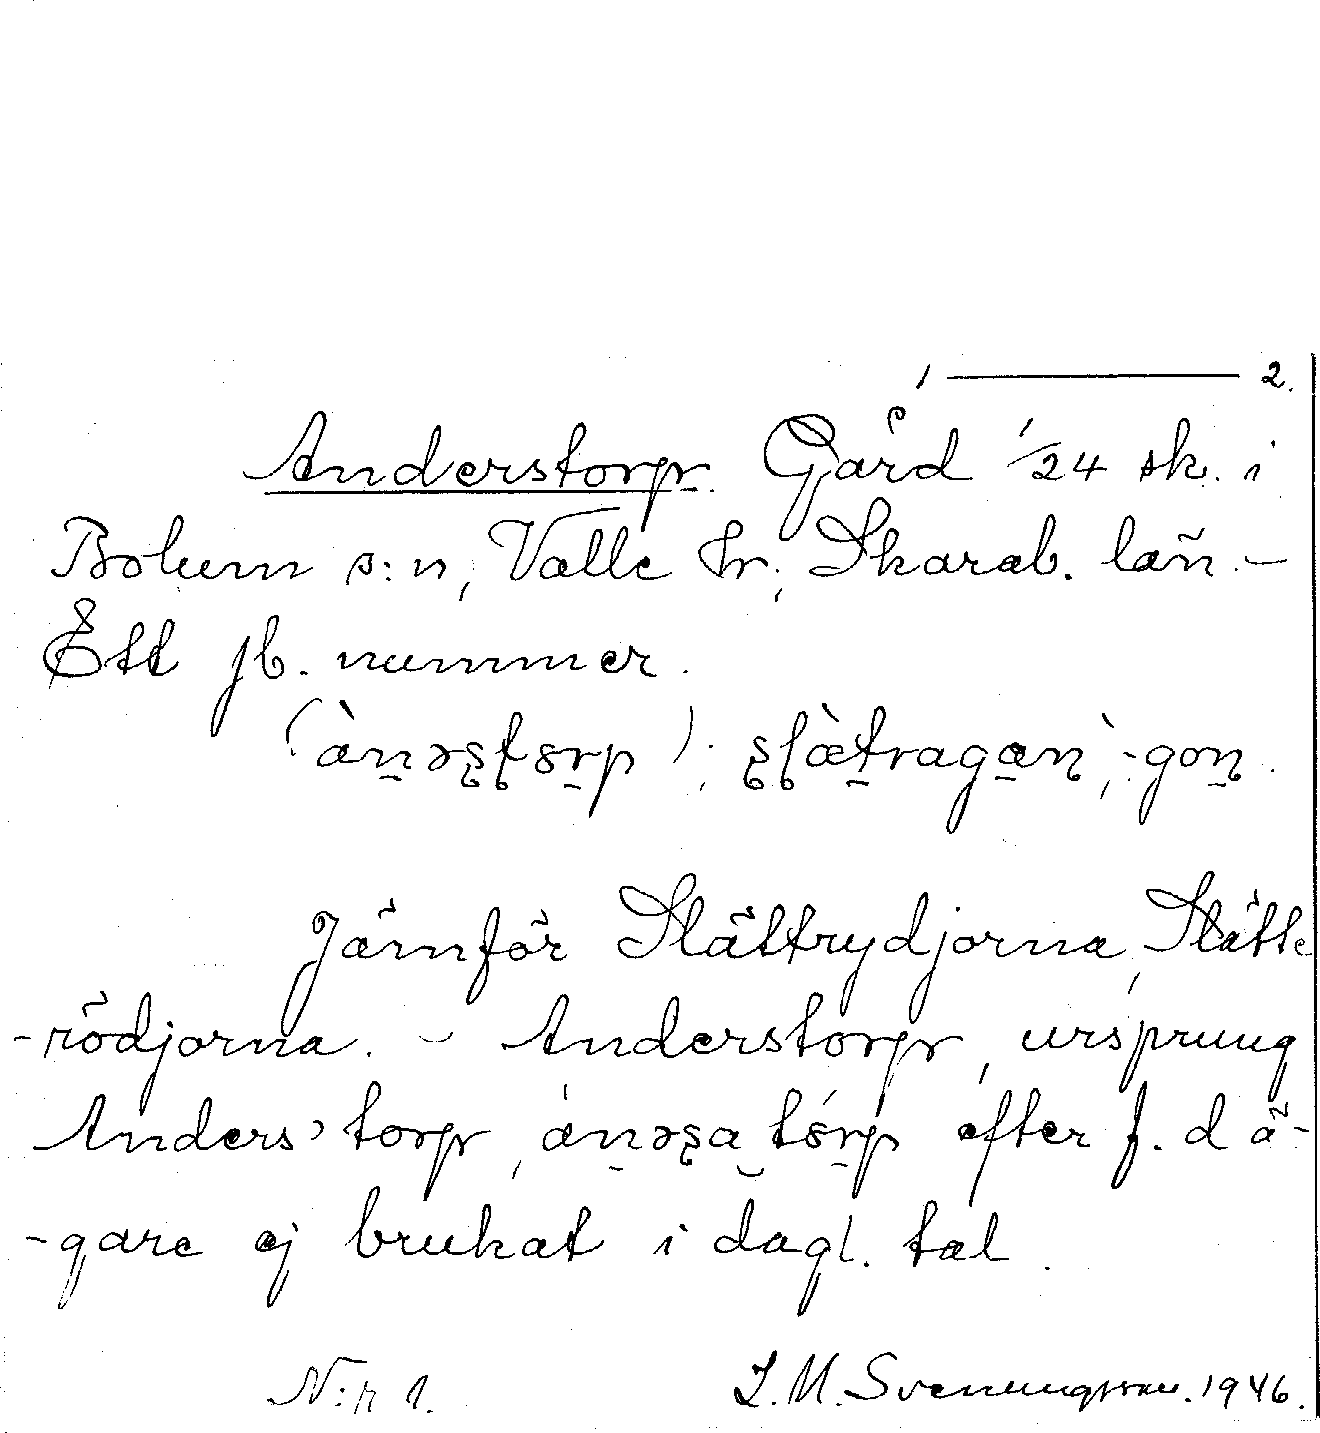 1 — 2.
Anderstorp. Gård 1/24 sk. i
Bolum s:n, Valle hr, Skarab. län. –
Ett jb. nummer.
Jämför Slättrydjorna, Slätte
-rödjorna. – Anderstorp, ursprung
Anders' torp, efter f. d ä-
-gare ej brukat i dagl. tal.
N:r 1. L. M. Svenungsson. 1946.